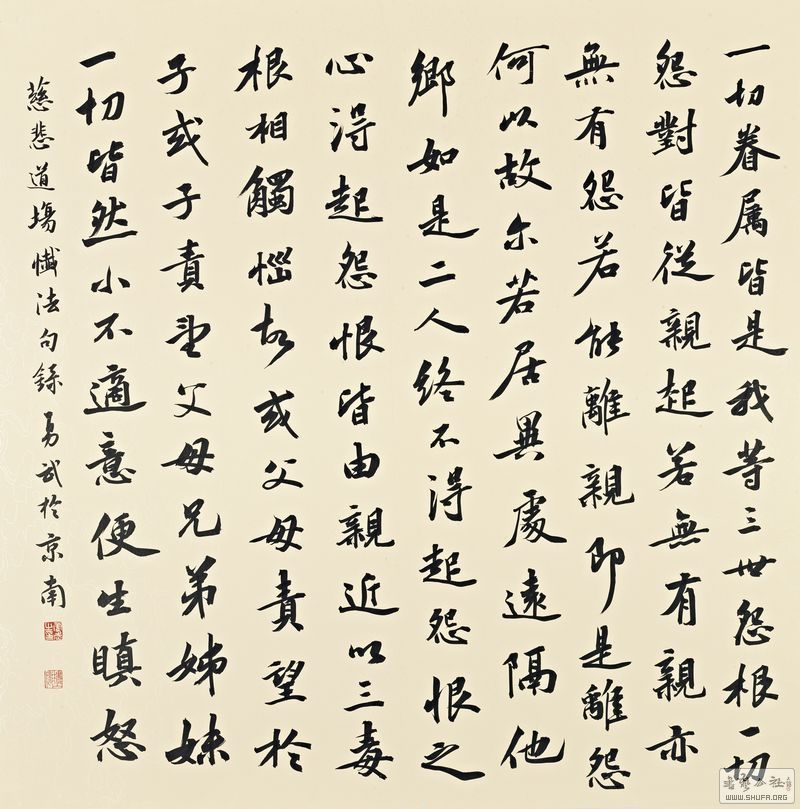 一切眷属皆是我等三世怨根一切
怨對皆從親起若無有親亦
無有怨若能離親即是離怨
何以故尒若居異處遠隔他
鄉如是二人終不得起怨恨之
心得起怨恨皆由親近以三毒
根相觸惱故或父母責望於
子或子責望父母兄弟姊妹
一切皆然小不適意便生瞋怒
慈悲道場懺法句錄 勇武於京南
WWW.SHUFA.ORG